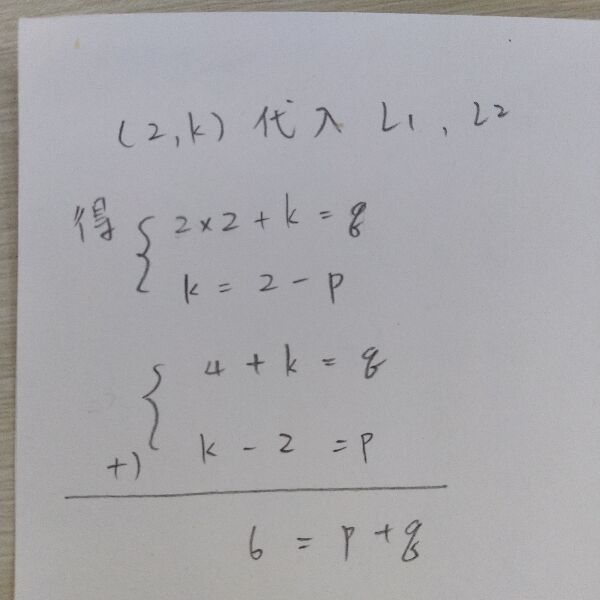 (2,k) 代入 L1, L2
得 { 2×2+k=q
k=2-p
{ 4+k=q
+) k-2=p
6=p+q